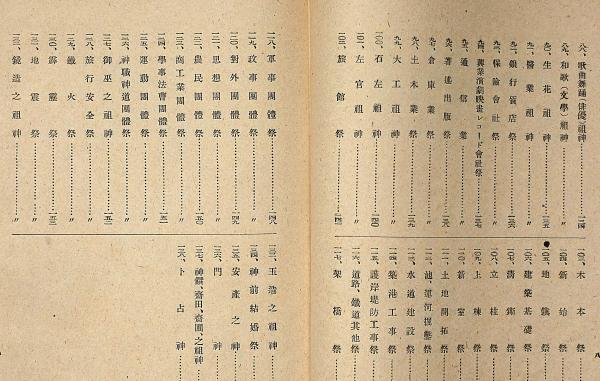 八八、歌曲舞踊(俳優)祖神……一三四
八九、和歌(文學)祖神……〃
九〇、生花祖神……一三五
九一、醫業祖神……〃
九二、銀行質店祭……一三六
九三、保險會社祭……〃
九四、興業演劇映畫レコード會社祭……一三七
九五、通信業……〃
九六、著述出版祭……一三八
九七、倉庫業祭……〃
九八、土木業祭……一三九
九九、大工祖神……〃
一〇〇、石左祖神……一四〇
一〇一、左官祖神……〃
一〇二、旅館祭……一四一
一〇三、木本祭
一〇四、斬始祭
一〇五、地鎭祭
一〇六、建築基礎祭
一〇七、清鉋祭
一〇八、立柱祭
一〇九、上棟祭
一一〇、新室祭
一一一、土地開拓祭
一一二、池、運河掘鑿祭
一一三、水道建設祭
一一四、築港工事祭
一一五、護岸堤防工事祭
一一六、道路、鐵道其他祭
一一七、架橋祭
八
一一八、軍事團體祭……一四八
一一九、政事團體祭……〃
一二〇、對外團體祭……一四九
一二一、思想團體祭……〃
一二二、農民團體祭……一五〇
一二三、商工業團體祭……〃
一二四、學事法曹團體祭……一五一
一二五、運動團體祭……〃
一二六、神職神道團體祭……〃
一二七、御巫之祖神……一五二
一二八、旅行安全祭……〃
一二九、鐵火祭……一五三
一三〇、霹靂祭……〃
一三一、地震祭……〃
一三二、鏡造之祖神……〃
一三三、玉造之祖神
一三四、神前結婚祭
一三五、安產之神
一三六、門神
一三七、神饌、齋田、齋圃、之祖神
一三八、卜占神